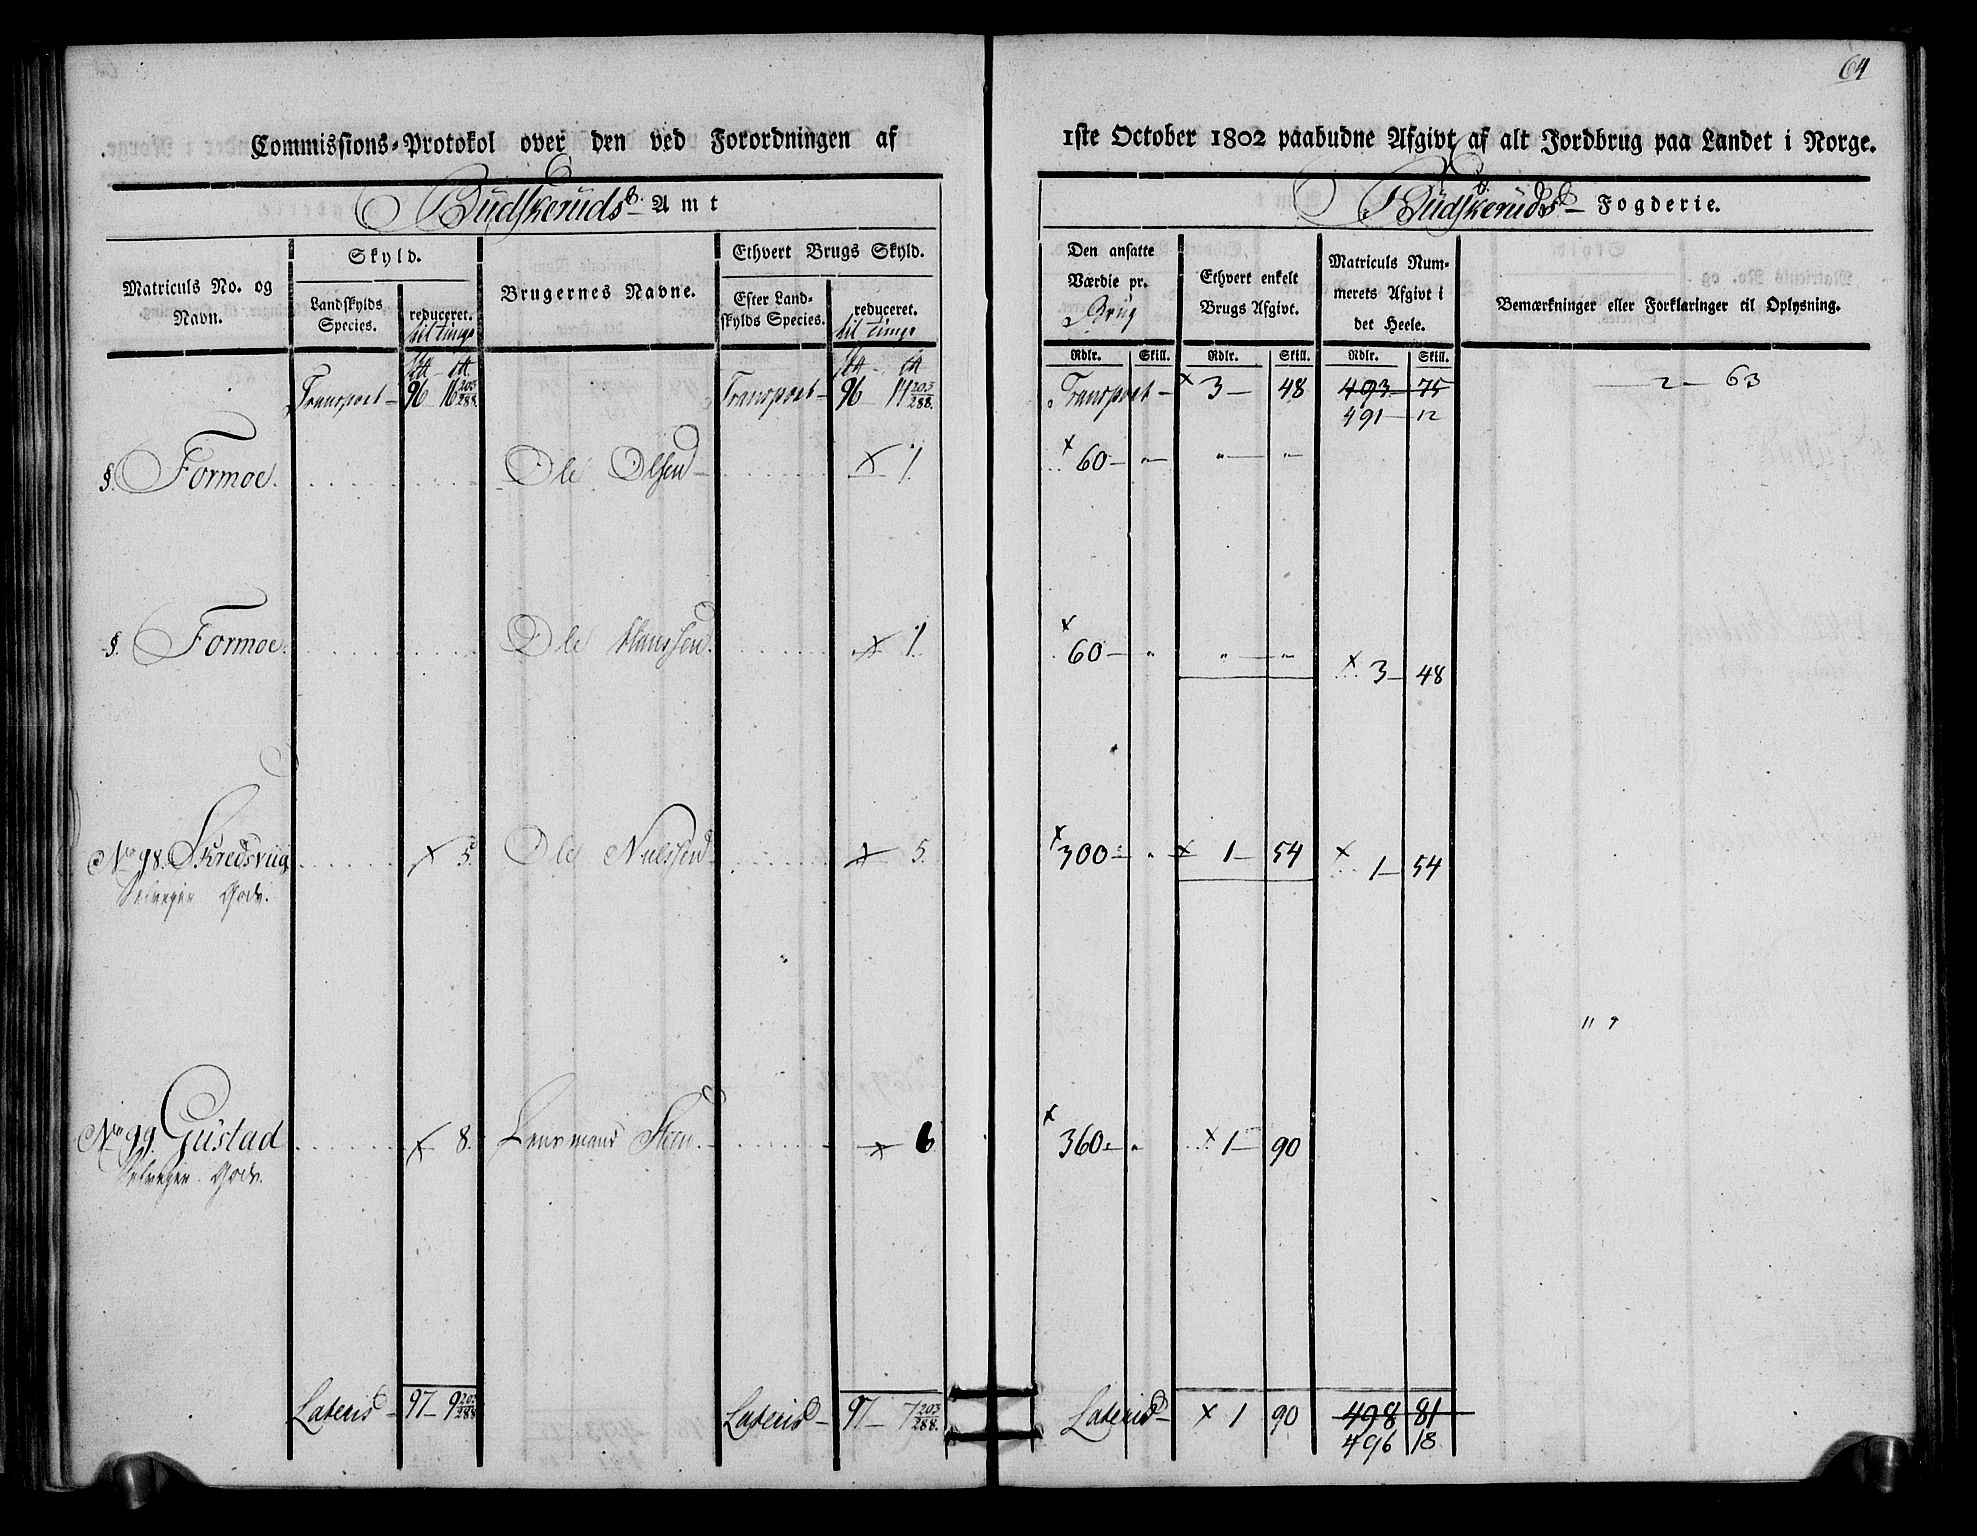 64
Commissions-Protokol over den ved Forordningen af 1ste October 1802 paabudne Afgivt af alt Jordbrug paa Landet i Norge.
Budskeruds Amt
Budskeruds Fogderie.
Matriculs No. og Navn.
Skyld.
Landskylds Species.
reduceret. til Tunge
Brugernes Navne.
Ethvert Brugs Skyld.
Efter Landskylds Species.
reduceret. til Tunge
Den ansatte Værdie pr. Brug
Ethvert enkelt Brugs Afgivt.
Matriculs Nummerets Afgivt i det Heele.
Bemærkninger eller Forklaringer til Oplysning.
Rdlr. Skill. Rdlr. Skill. Rdlr. Skill.
Transport – 96 16 203/288. Transport – 96 14 203/288. Transport – x 3 – 48 493 – 75 – 2 – 63
491 – 12
§. Formoe. Ole Olsen – x 1. x 60 – " – " – " –
§. Formoe. Ole Hanssen. x 1. x 60 – " " – " – x 3 – 48
No 98. Skredsviig x 5. Ole Nielssen x 5. x 300 – " x 1 – 54 x 1 – 54
Selveyer Gods.
No 99. Gustad x 8. Lensmand Steen. x 6 x 360 – " x 1 – 90
Selveyer Gods.
Lateris – 97 – 9 203/288 Lateris – 97 – 7 203/288. Lateris – x 1 90 498 81
496 18